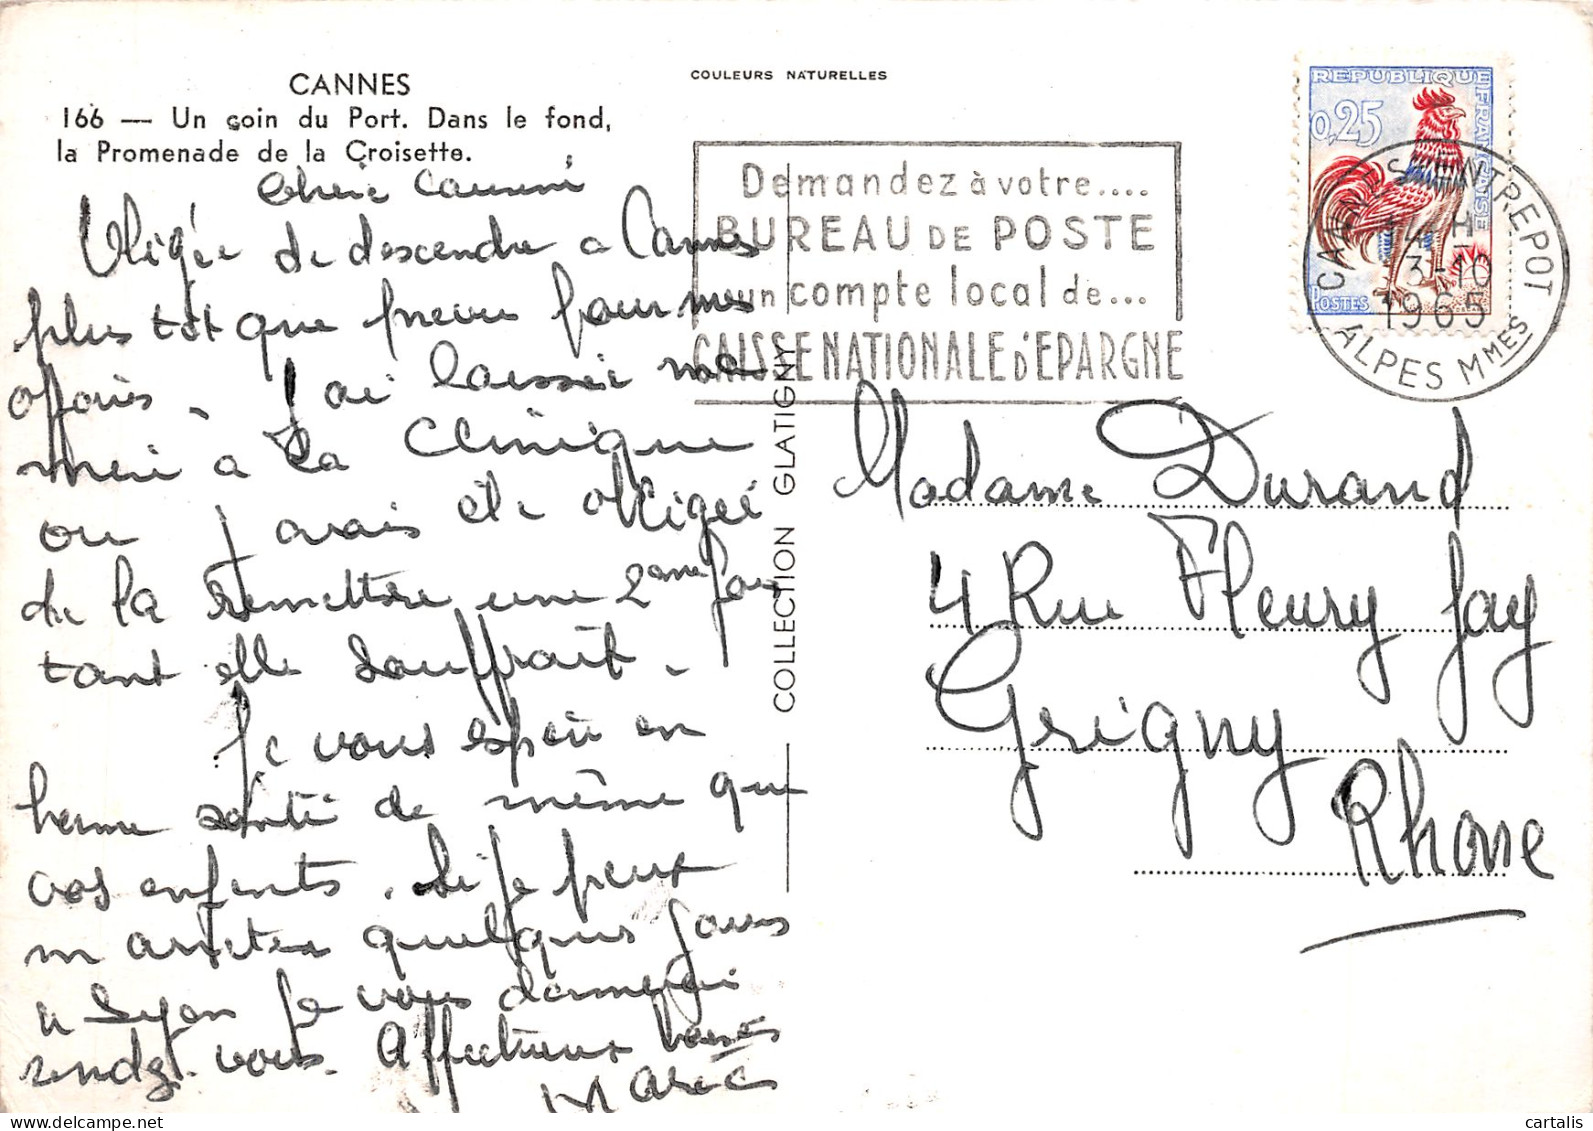 CANNES
166 — Un coin du Port. Dans le fond,
la Promenade de la Croisette.
COULEURS NATURELLES
REPUBLIQUE FRANCAISE
0,25
POSTES
CANNES ENTREPOT
H
3-10
1965
ALPES MMES
Demandez à votre....
BUREAU DE POSTE
un compte local de...
CAISSE NATIONALE D'EPARGNE
COLLECTION GLATIGNY
Chère
Obligée de descendre a Cannes
plus tot que prevu pour mes
affaires. J'ai laissée ma
mère a la Clinique
ou j avais été obligée
de la remettre une 2ème fois
tant elle souffrait.
Je vous espère en
bonne santé de même que
vos enfants. Si je peux
m arreter quelques jours
a Lyon je vous donnerai
rendez-vous. Affectueux baisers
Madame Durand
4 Rue Fleury Jay
Grigny
Rhone
© cartalis
delcampe.net